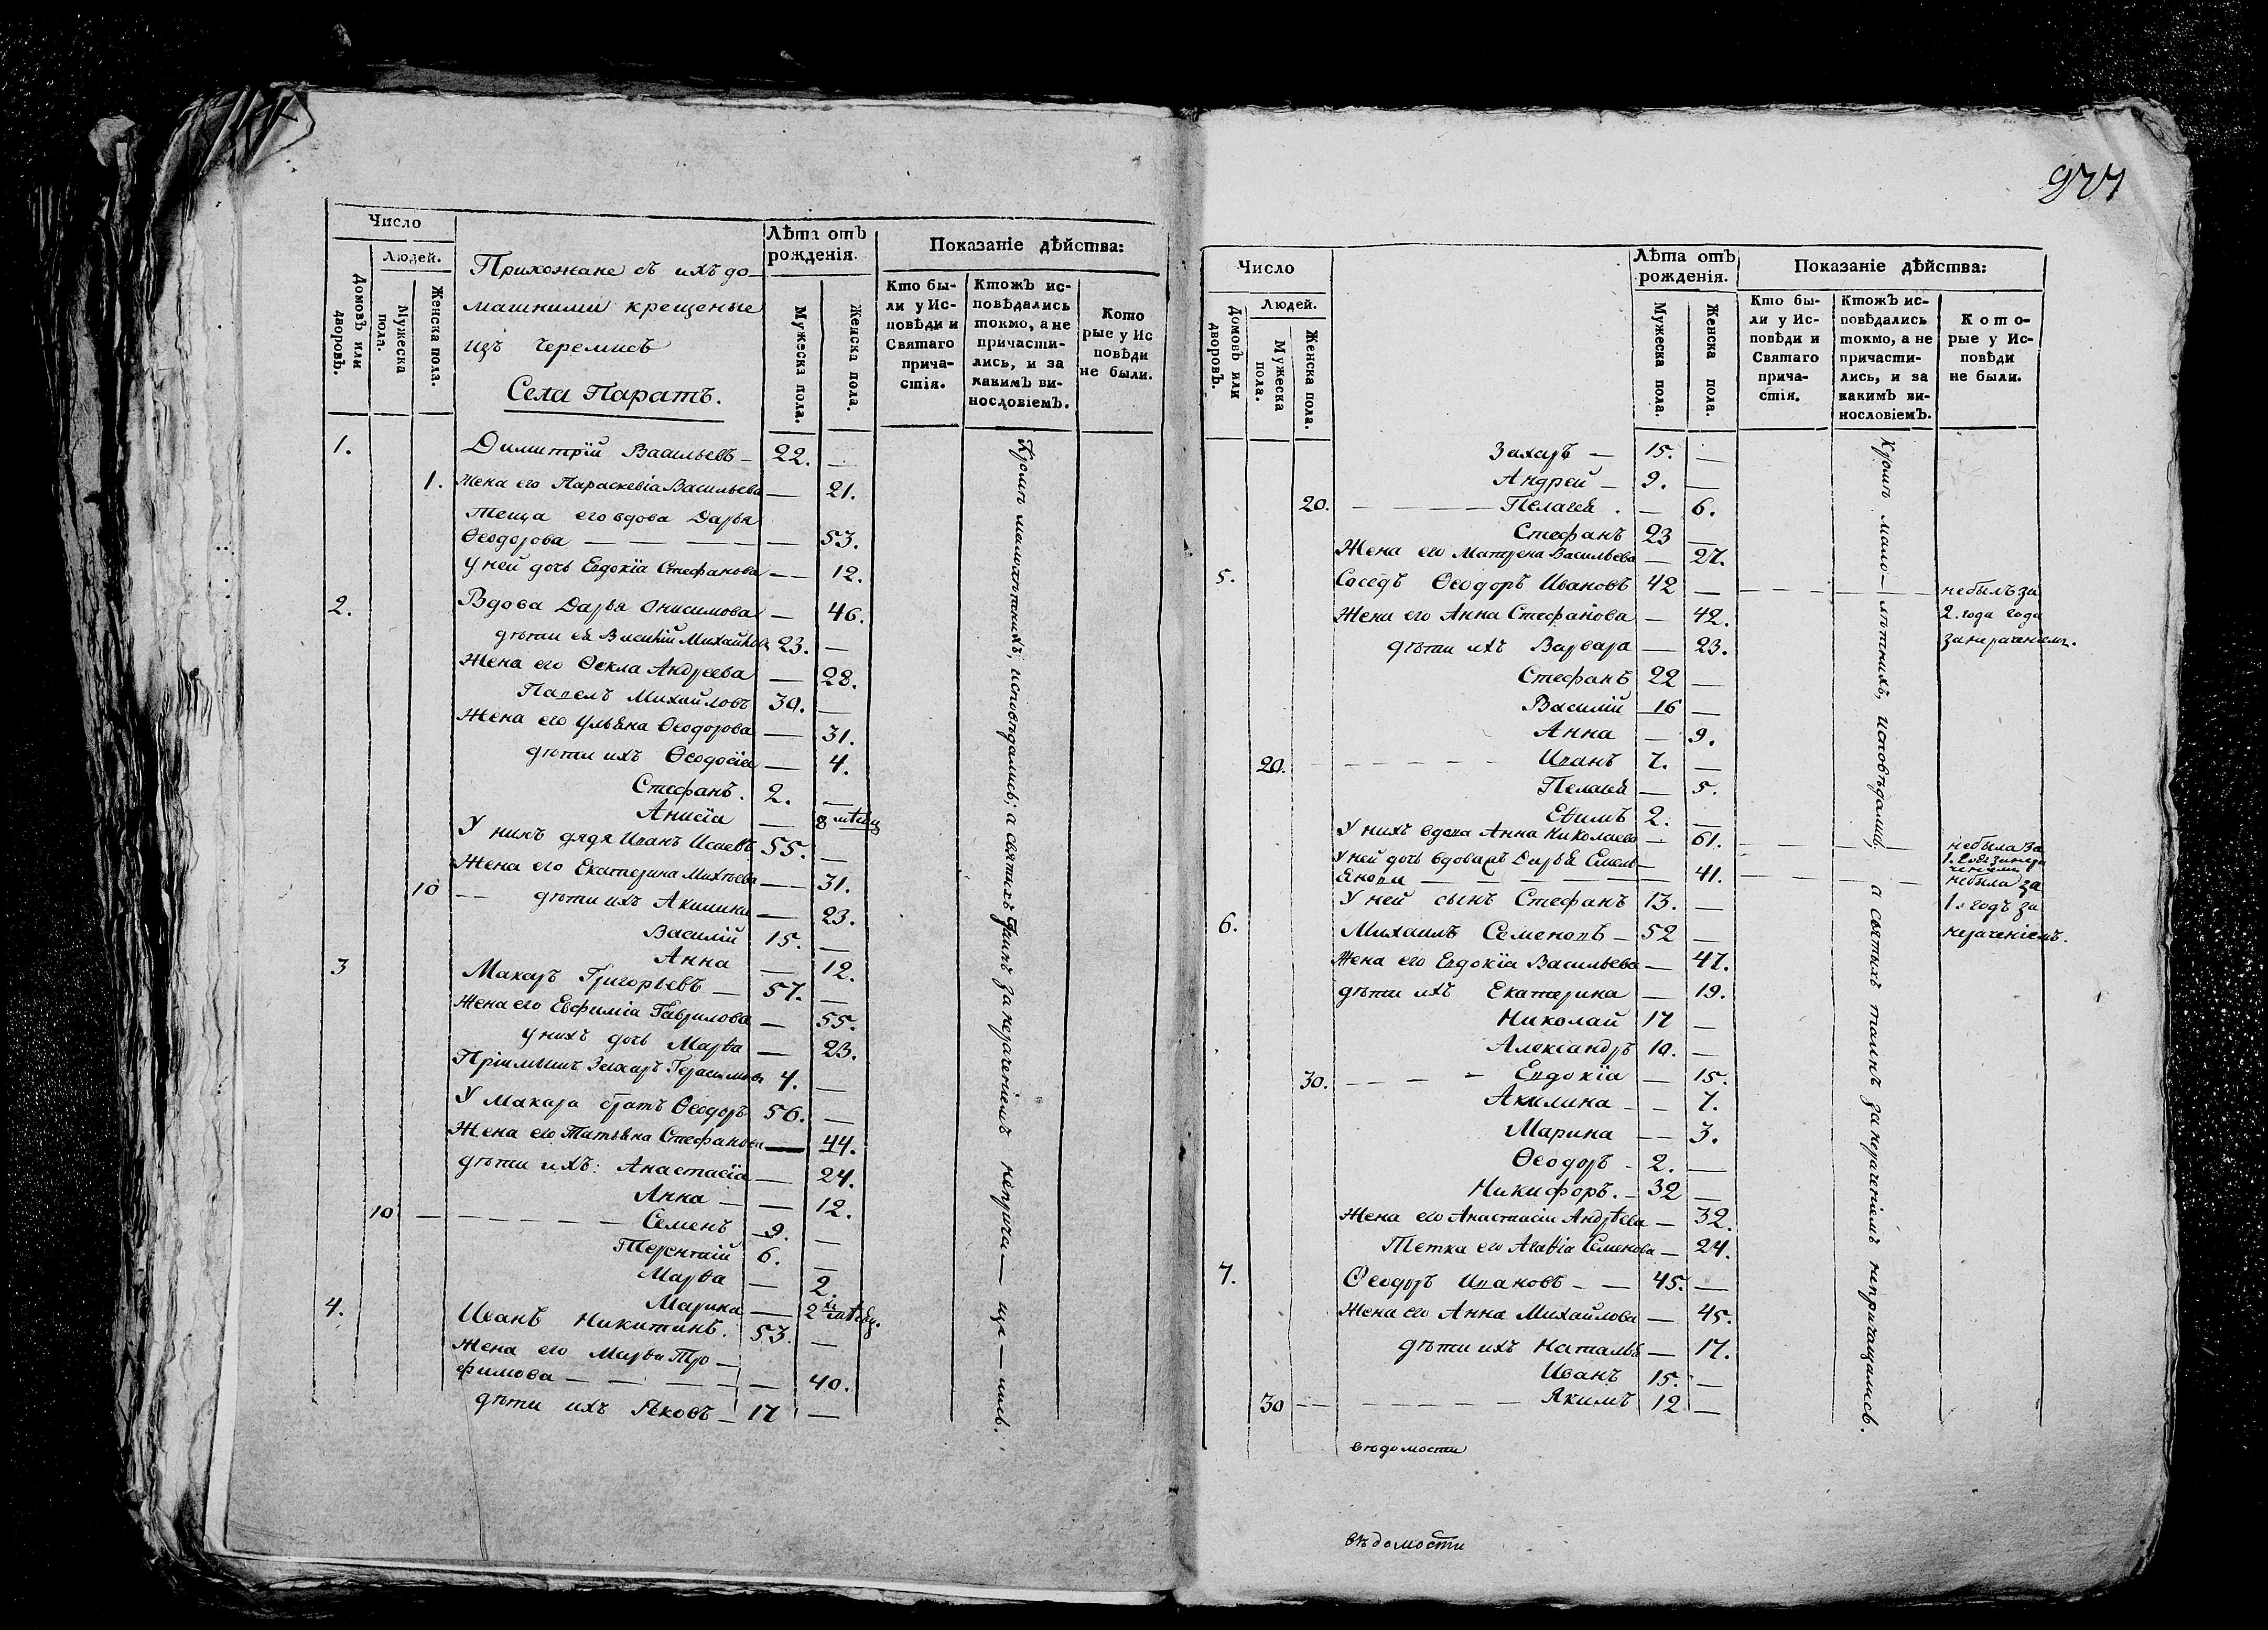 Число
Людей.
Домовъ или дворовъ.
Мужеска пола.
Женска пола.
Прихожане съ ихъ до-
машними крещеные
изъ черемисъ
Села Паратъ.
Лѣта отъ рожденія.
Мужеска пола.
Женска пола.
Показаніе дѣйства:
Кто бы-
ли у Ис-
повѣди и
Святаго
прича-
стія.
Ктожъ ис-
повѣдались
токмо, а не
причасти-
лись, и за
какимъ ви-
нословіемъ.
Кото
рые у Ис
повѣди
не были.
1. Димитрій Васильевъ — 22. —
1. Жена его Параскевіа Васильева — 21.
Теща его вдова Дарья
Ѳеодорова — — — — — 53.
У ней дочь Евдокіа Стефанова — 12.
2. Вдова Дарья Онисимова — 46.
дѣти ея Василій Михайловъ 23. —
Жена его Ѳекла Андреева — 28.
Павелъ Михайловъ 30. —
Жена его Ульяна Ѳеодорова — 31.
дѣти ихъ Ѳеодосіа — 4.
Стефанъ. 2. —
Анисіа — 8 мѣсяц
У нихъ дядя Иванъ Исаевъ 55. —
Жена его Екатерина Михѣева — 31.
10 — дѣти ихъ Акилина — 23.
Василій 15. —
Анна — 12.
3 Макаръ Григорьевъ — 57. —
Жена его Евфиміа Гаврилова — 55.
У нихъ дочь Марѳа — 23.
Пріимышъ Захаръ Герасимовъ 4. —
У Макара братъ Ѳеодоръ 56. —
Жена его Татьяна Стефанова — 44.
дѣти ихъ: Анастасіа — 24.
Анна — — 12.
10 — — — — — — Семенъ 9. —
Терентій 6. —
Марѳа — 2.
Марина — 2 мѣсяц.
4. Иванъ Никитинъ. 53. —
Жена его Марѳа Тро—
фимова — — — — — 40.
дѣти ихъ Яковъ — 17 —
Кромѣ малолѣтнихъ, исповѣдались; а святыхъ Таинъ за нераченіемъ неприча — ща — лись.
977
Число
Людей.
Домовъ или дворовъ.
Мужеска пола.
Женска пола.
Лѣта отъ рожденія.
Мужеска пола.
Женска пола.
Показаніе дѣйства:
Кто бы-
ли у Ис-
повѣди и
Святаго
прича-
стія.
Ктожъ ис-
повѣдались
токмо, а не
причасти-
лись, и за
какимъ ви-
нословіемъ.
Кото-
рые у Ис-
повѣди
не были.
Захаръ — 15. —
Андрей — 9. —
20. — — — — Пелагея . — 6.
Стефанъ 23 —
Жена его Матрена Васильева — 27.
5. Соседъ Ѳеодоръ Ивановъ 42 — — — — — — небылъ за
Жена его Анна Стефанова — 42. 2. года года
дѣти ихъ Варвара — 23. занераченіемъ.
Стефанъ 22 —
Василій 16 —
Анна — 9.
20. — — — — — — Иванъ 7. —
Пелагея — 5.
Ефимъ 2. —
У нихъ вдова Анна Николаева — 61. — — — — небыла за
У ней дочь вдова Дарья Емель—
янова — — — — — 41. — — — — небыла за
У ней сынъ Стефанъ 13. — 1. годъ за
6. Михаилъ Семеновъ — 52 — нераченіемъ.
Жена его Евдокіа Васильева — 47.
дѣти ихъ Екатерина — 19.
Николай 17 —
Александръ 10. —
30. — — — — Евдокіа — 15.
Акилина — — 7.
Марина — — 3.
Ѳеодоръ — 2. —
Никифоръ. — 32 —
Жена его Анастасіа Андрѣева — 32.
Тетка его Агаѳіа Семенова — 24.
7. Ѳеодоръ Ивановъ — — 45. —
Жена его Анна Михайлова — 45.
дѣти ихъ Наталья — 17.
Иванъ 15. —
30 — — — — — — Якимъ 12 —
Кромѣ мало — лѣтнихъ, исповѣдались, а святыхъ таинъ за нераченіемъ непричащались.
вѣдомости
вѣдомости